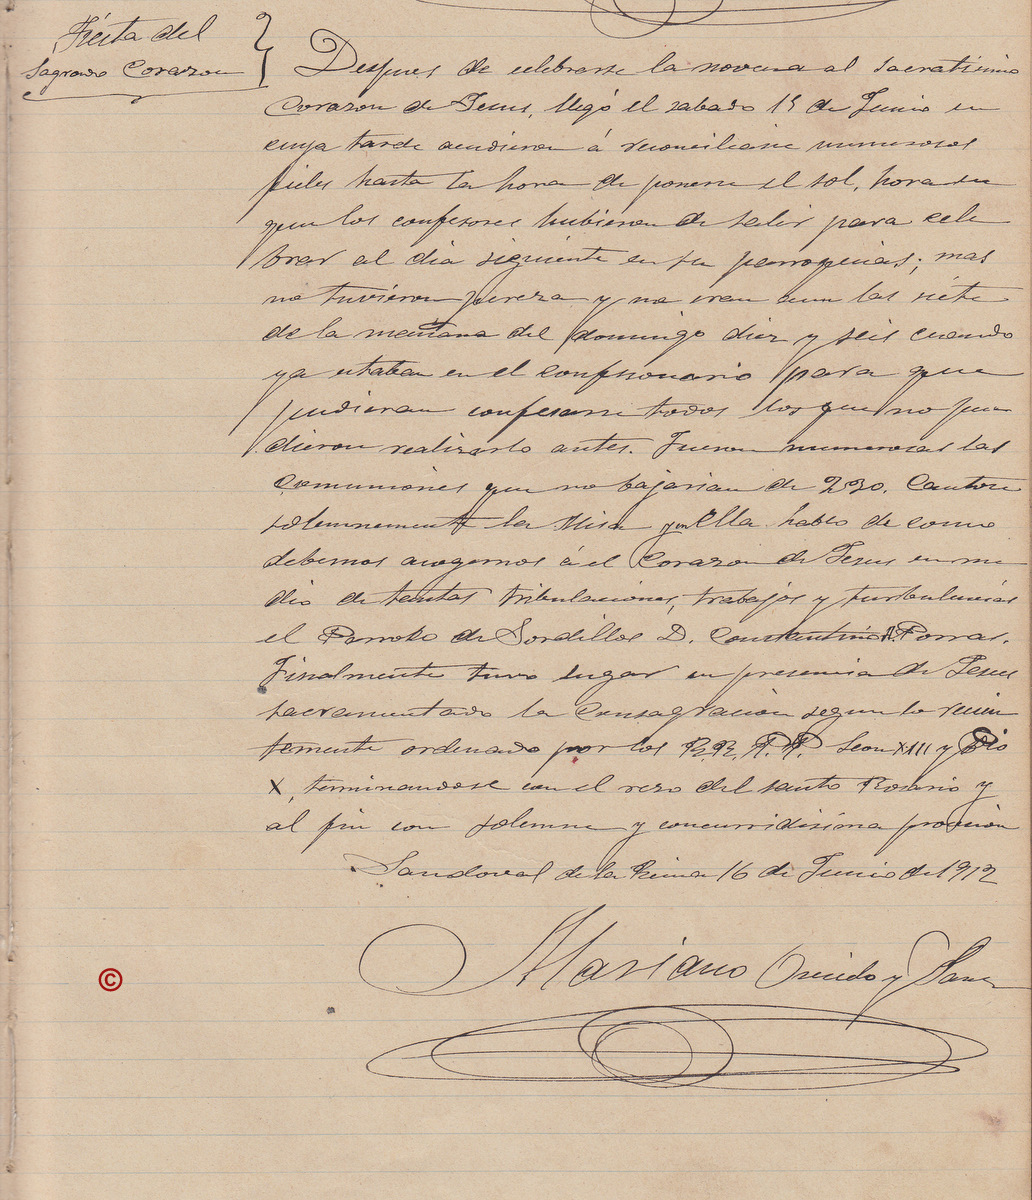 Fiesta del
Sagrado Corazon
Despues de celebrarse la novena al sacratisimo
Corazon de Jesus, llegó el sabado 15 de Junio en
cuya tarde acudieron á reconciliarse numerosos
fieles hasta la hora de ponerse el sol, hora en
que los confesores hubieron de salir para cele
brar al dia siguiente en su parroquias; mas
no tuvieron pereza y no eran aun las siete
de la mañana del domingo diez y seis cuando
ya estaban en el confesonario para que
pudieran confesarse todos los que no pu
dieron realizarlo antes. Fueron numerosas las
Comuniones que no bajarian de 230. Cantose
solemnemente la Misa y en ella hablo de como
debemos acogernos á el Corazon de Jesus en me
dio de tantas tribulaciones, trabajos y turbulencias
el Parroko de Sordillos D. Constantino Porras.
Finalmente tuvo lugar en presencia de Jesus
sacramentado la Consagración segun lo recien
temente ordenado por los R.R. P.P. Leon XIII y Pio
X, terminandose con el rezo del santo Rosario y
al fin con solemne y concurridisima procesion
Sandoval de la Reina 16 de Junio de 1912
Mariano y Sanz
©